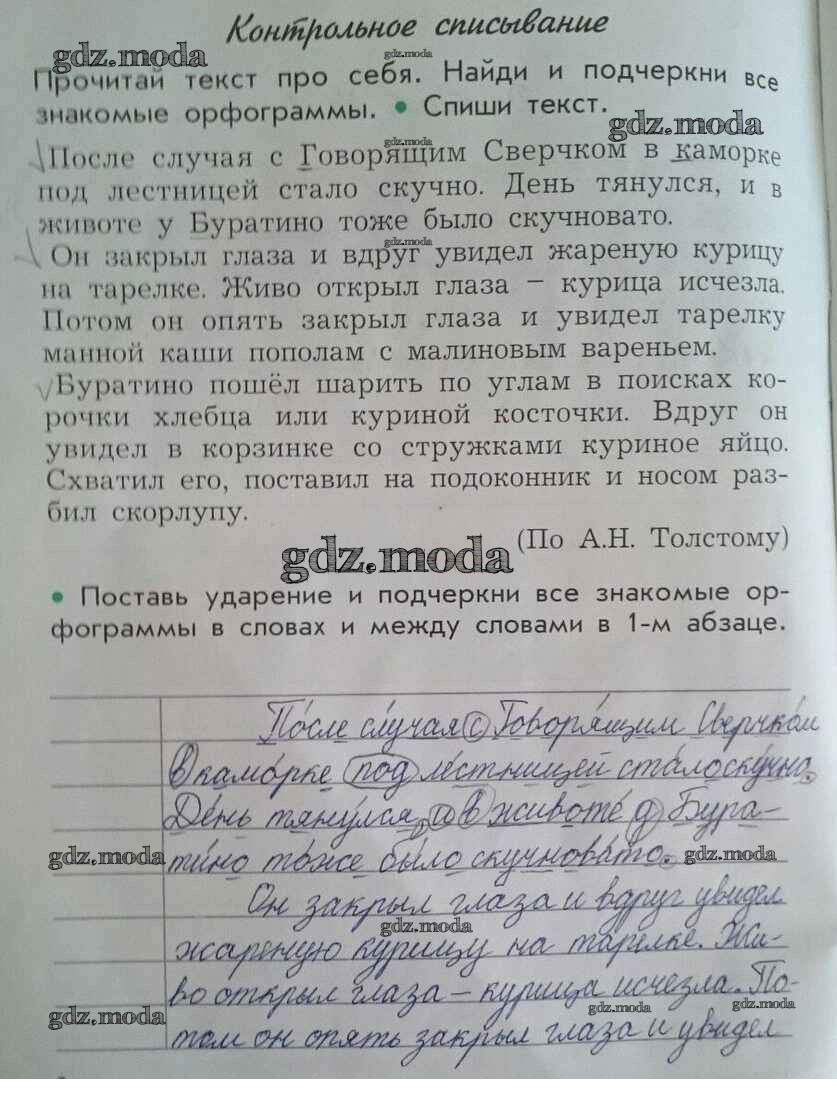 Контрольное списывание
gdz.moda
gdz.moda
Прочитай текст про себя. Найди и подчеркни все
знакомые орфограммы. • Спиши текст.
gdz.moda
gdz.moda
После случая с Говорящим Сверчком в каморке
под лестницей стало скучно. День тянулся, и в
животе у Буратино тоже было скучновато.
gdz.moda
Он закрыл глаза и вдруг увидел жареную курицу
на тарелке. Живо открыл глаза – курица исчезла.
Потом он опять закрыл глаза и увидел тарелку
манной каши пополам с малиновым вареньем.
Буратино пошёл шарить по углам в поисках ко-
рочки хлебца или куриной косточки. Вдруг он
увидел в корзинке со стружками куриное яйцо.
Схватил его, поставил на подоконник и носом раз-
бил скорлупу.
(По А.Н. Толстому)
gdz.moda
• Поставь ударение и подчеркни все знакомые ор-
фограммы в словах и между словами в 1-м абзаце.
По́сле слу́чая с Говоря́щим Сверчко́м
в камо́рке под ле́стницей ста́ло ску́чно.
Де́нь тяну́лся, и в животе́ у Бура-
ти́но то́же бы́ло скучнова́то.
gdz.moda
gdz.moda
Он закрыл глаза и вдруг увидел
gdz.moda
жареную курицу на тарелке. Жи-
во открыл глаза – курица исчезла. По-
gdz.moda
gdz.moda
gdz.moda
том он опять закрыл глаза и увидел